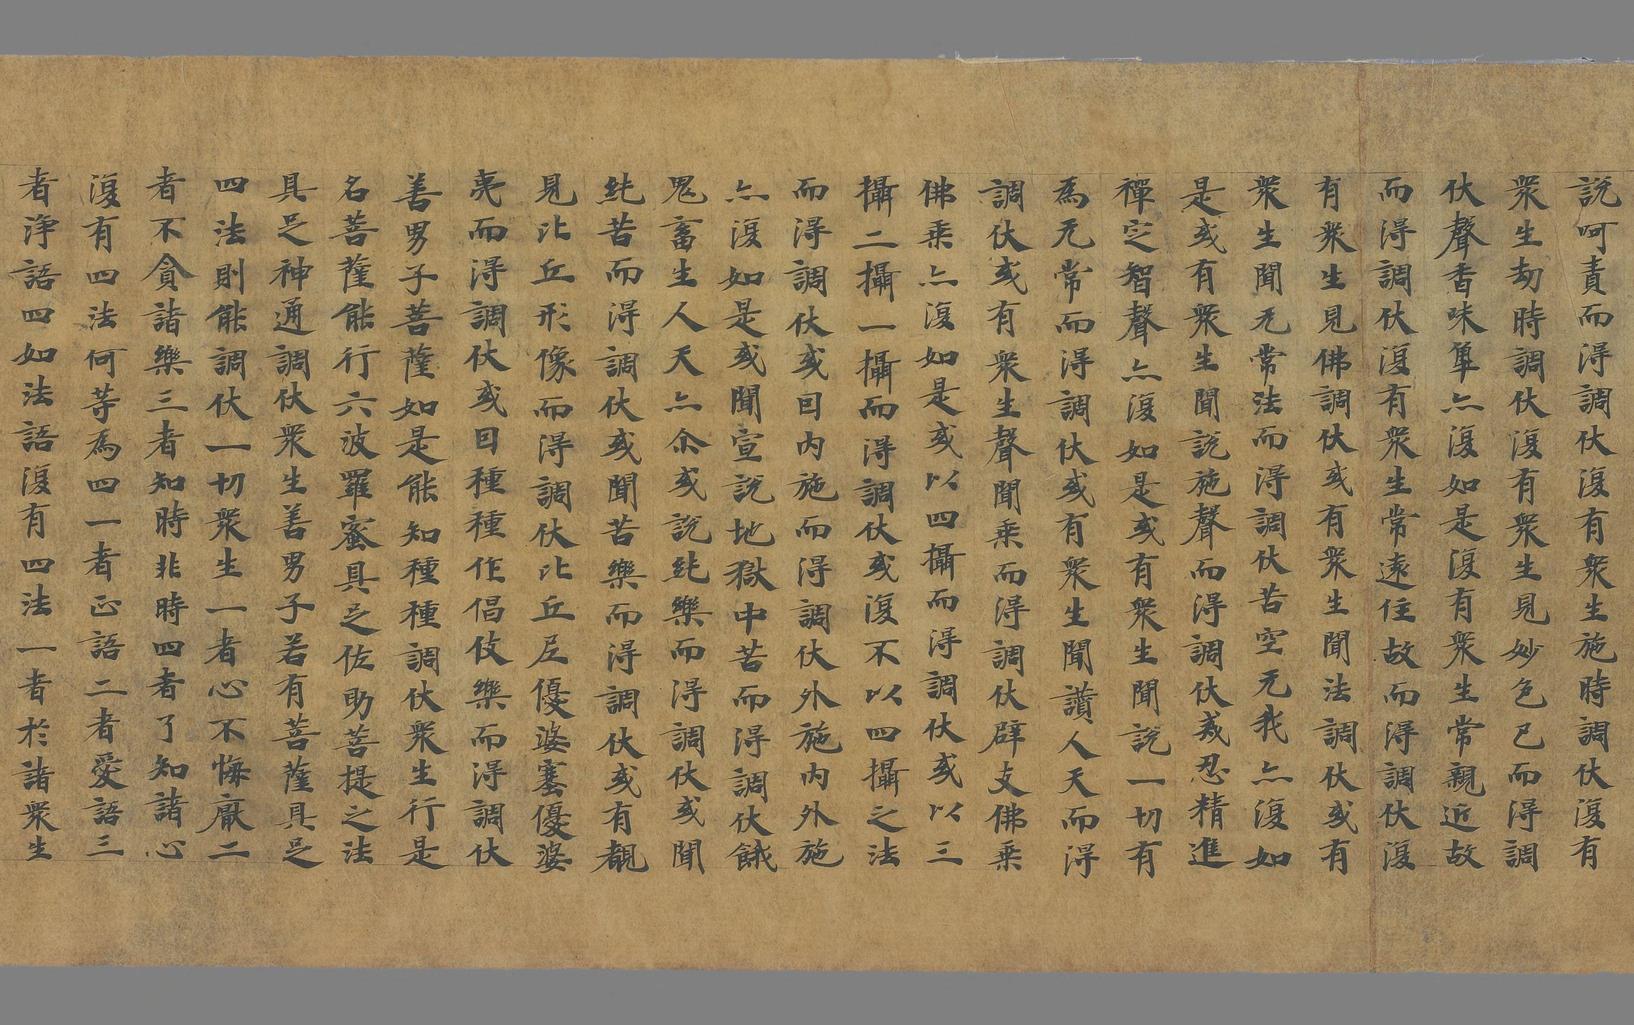 說呵責而得調伏復有衆生施時調伏復有
衆生劫時調伏復有衆生見妙色已而得調
伏聲香味觸亦復如是復有衆生常親近故
而得調伏復有衆生常遠住故而得調伏復
有衆生見佛調伏或有衆生聞法調伏或有
衆生聞无常法而得調伏苦空无我亦復如
是或有衆生聞說施聲而得調伏戒忍精進
禪定智聲亦復如是或有衆生聞說一切有
為无常而得調伏或有衆生聞讚人天而得
調伏或有衆生聲聞乘而得調伏辟支佛乘
佛乘亦復如是或以四攝而得調伏或以三
攝二攝一攝而得調伏或復不以四攝之法
而得調伏或因內施而得調伏外施內外施
亦復如是或聞宣說地獄中苦而得調伏餓
鬼畜生人天亦尒或說純樂而得調伏或聞
純苦而得調伏或聞苦樂而得調伏或有覩
見比丘形像而得調伏比丘尼優婆塞優婆
夷而得調伏或因種種作倡伎樂而得調伏
善男子菩薩如是能知種種調伏衆生行是
名菩薩能行六波羅蜜具足佐助菩提之法
具足神通調伏衆生善男子若有菩薩具足
四法則能調伏一切衆生一者心不悔厭二
者不貪諸樂三者知時非時四者了知諸心
復有四法何等為四一者正語二者愛語三
者淨語四如法語復有四法一者於諸衆生